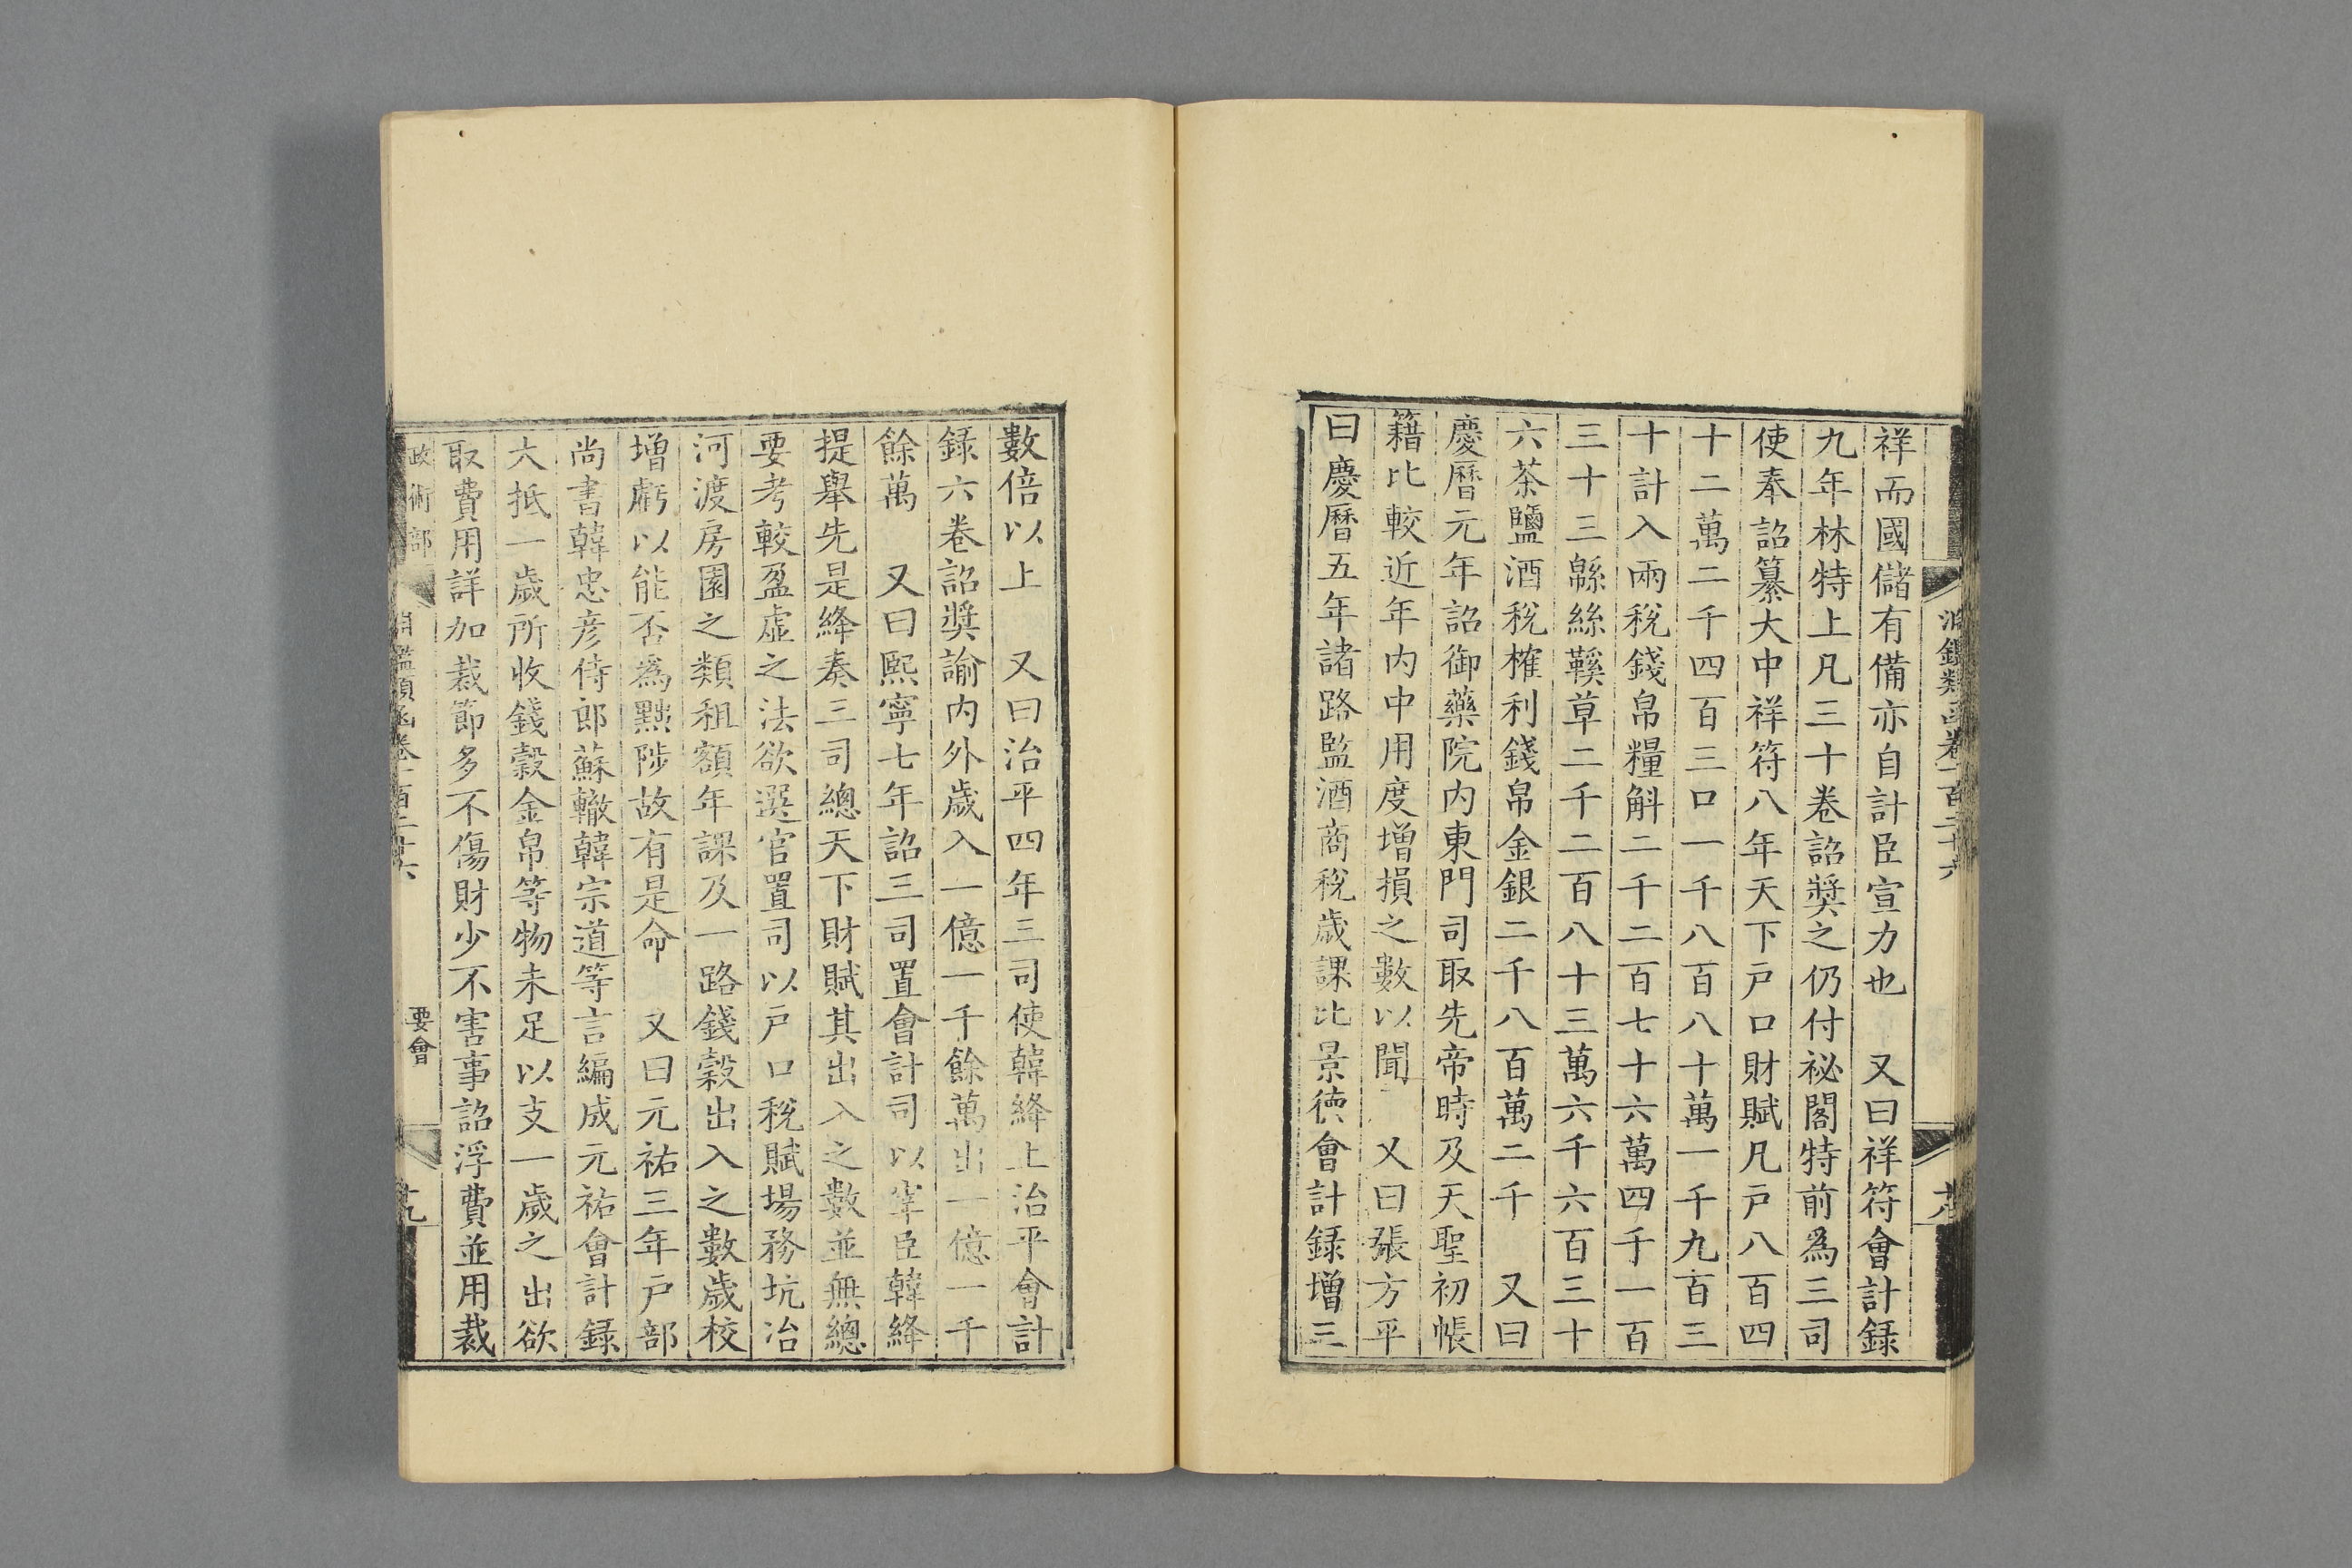 淵鑑類函卷一百二十六
祥而國儲有備亦自計臣宣力也　又曰祥符會計録
九年林特上凡三十卷詔奬之仍付祕閣特前爲三司
使奉詔纂大中祥符八年天下戸口財賦凡戸八百四
十二萬二千四百三口一千八百八十萬一千九百三
十計入兩稅錢帛糧斛二千二百七十六萬四千一百
三十三緜絲鞵草二千二百八十三萬六千六百三十
六茶鹽酒稅榷利錢帛金銀二千八百萬二千　又曰
慶曆元年詔御藥院内東門司取先帝時及天聖初帳
籍比較近年内中用度增損之數以聞　又曰張方平
曰慶曆五年諸路監酒商稅歳課比景徳會計録增三
數倍以上　又曰治平四年三司使韓絳上治平會計
録六卷詔奬諭内外歳入一億一千餘萬出一億一千
餘萬　又曰熙寧七年詔三司置會計司以宰臣韓絳
提舉先是絳奏三司總天下財賦其出入之數並無總
要考較盈虛之法欲選官置司以戸口稅賦場務坑冶
河渡房園之類租額年課及一路錢穀出入之數歲校
增虧以能否爲黜陟故有是命　又曰元祐三年戸部
尚書韓忠彦侍郎蘇轍韓宗道等言編成元祐會計録
大抵一歲所收錢穀金帛等物未足以支一歲之出欲
取費用詳加裁節多不傷財少不害事詔浮費並用裁
政術部　淵鑑類函卷一百二十六　要會　十九